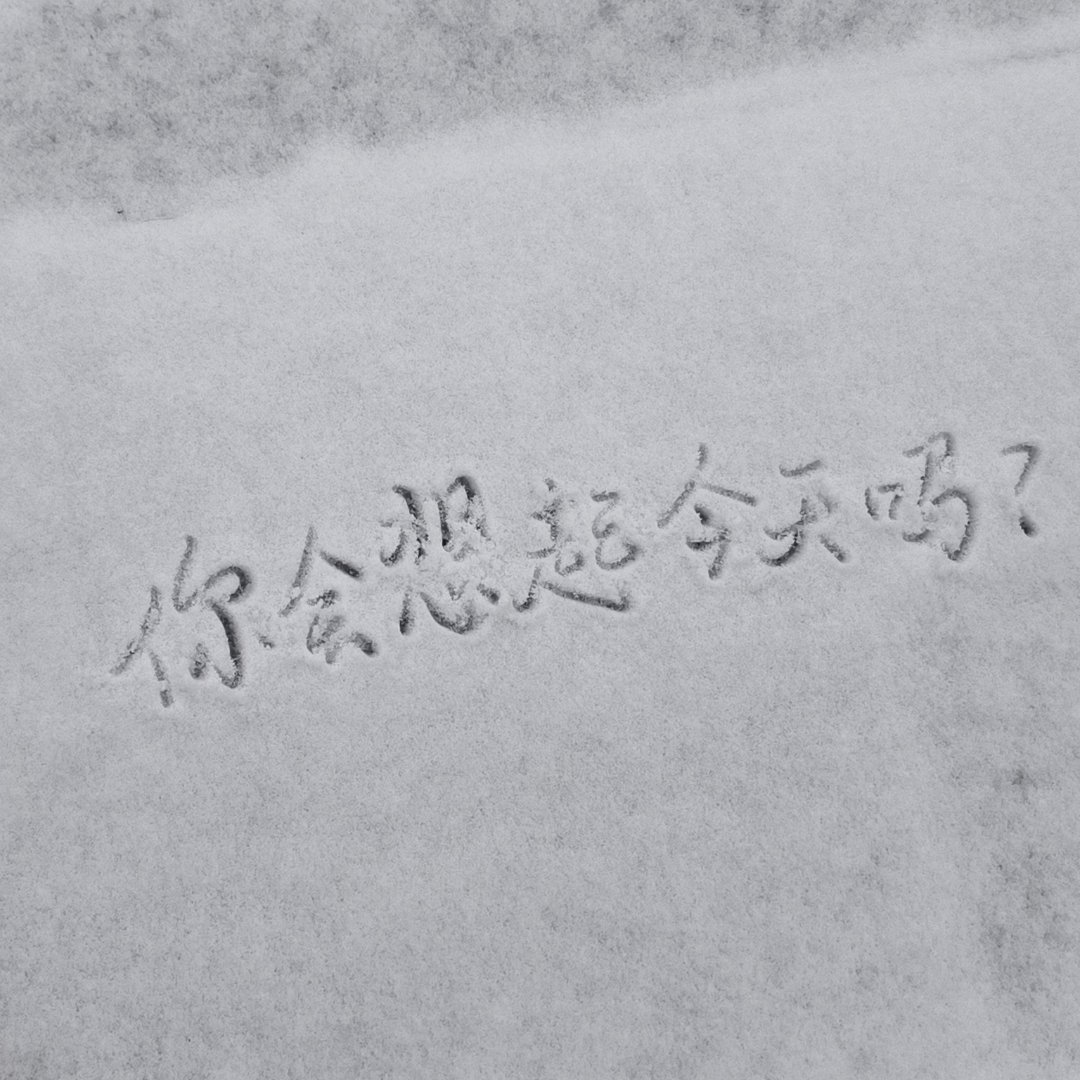 你会想起今天吗?